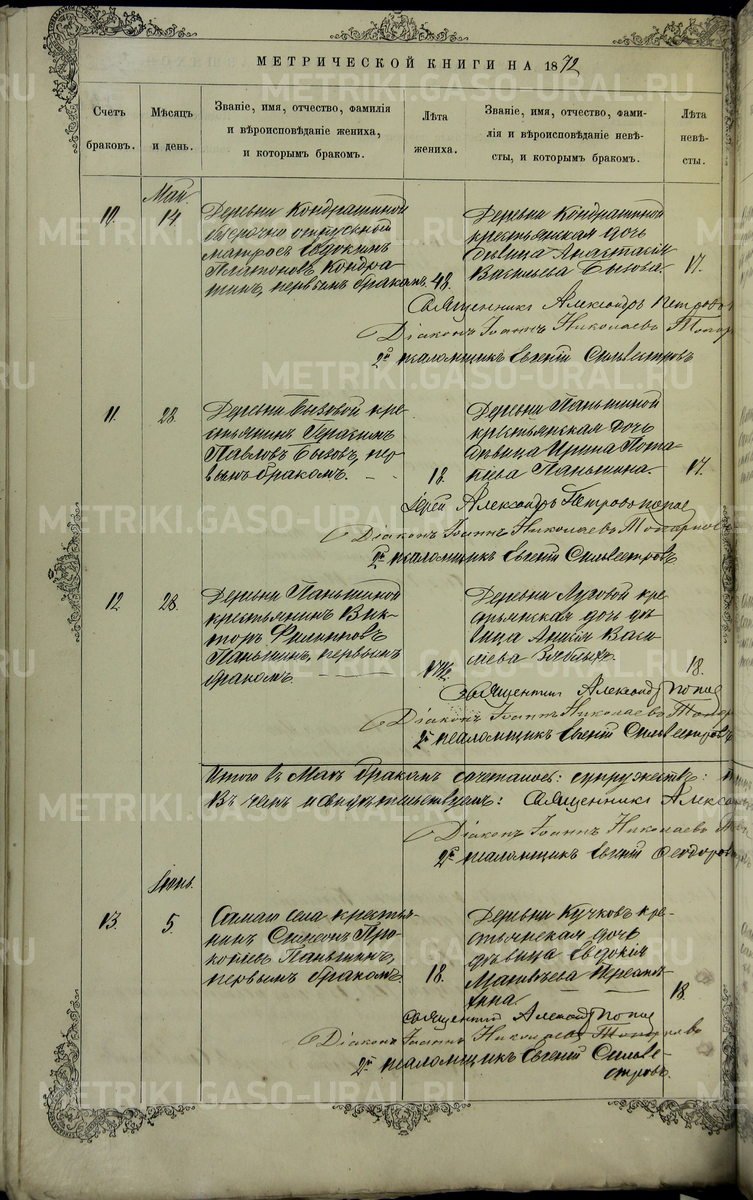 МЕТРИЧЕСКОЙ КНИГИ НА 1872
Счетъ браковъ.
Мѣсяцъ и день.
Званіе, имя, отчество, фамилія и вѣроисповѣданіе жениха, и которымъ бракомъ.
Лѣта жениха.
Званіе, имя, отчество, фамилія и вѣроисповѣданіе невѣсты, и которымъ бракомъ.
Лѣта невѣсты.
Май
10. 14.
Деревни Кондратиной
отпускный
матросъ Евдокимъ
Платоновъ Кондра
тинъ, первымъ бракомъ 48.
Деревни Кондратиной
крестьянская дочь
дѣвица Анастасія
Васильева Бызова. 17.
Священникъ Александръ Петровъ
Діаконъ Іоаннъ Николаевъ Топор
2й псаломщикъ Евгеній Сильвестровъ
11. 28.
Деревни Бызовой кре-
стьянинъ Герасимъ
Павловъ Бызовъ, пер-
вымъ бракомъ. 18.
Деревни Паньшиной
крестьянская дочь
дѣвица Ирина Пота-
пова Паньшина. 17.
Іерей Александръ Петровъ Попов
Діаконъ Іоаннъ Николаевъ Топорко
2й псаломщикъ Евгеній Сильвестровъ
12. 28.
Деревни Паньшиной
крестьянинъ Вик-
торъ Филипповъ
Паньшинъ, первымъ
бракомъ.
Деревни Луговой кре-
стьянская дочь дѣ-
вица Васи-
льева 18.
Священникъ Александръ Попов
Діаконъ Іоаннъ Николаевъ Топор
2й псаломщикъ Евгеній Сильвестровъ
Итого въ Маѣ бракомъ сочеталось: супружествъ:
Въ чемъ и свидѣтельствуемъ: Священникъ Алекса
Діаконъ Іоаннъ Николаевъ Т
2й псаломщикъ Евгеній
Іюнь.
13. 5.
Самаго села крестья-
нинъ Симеонъ Про-
копьевъ Паньшинъ,
первымъ бракомъ. 18.
Деревни Кучковъ кре-
стьянская дочь
дѣвица Евдокія
Матвѣева 18.
Священникъ Александръ Попов
Діаконъ Іоаннъ Николаевъ
2й псаломщикъ Евгеній Сильве-
стровъ.
METRIKI.GASO-URAL.RU